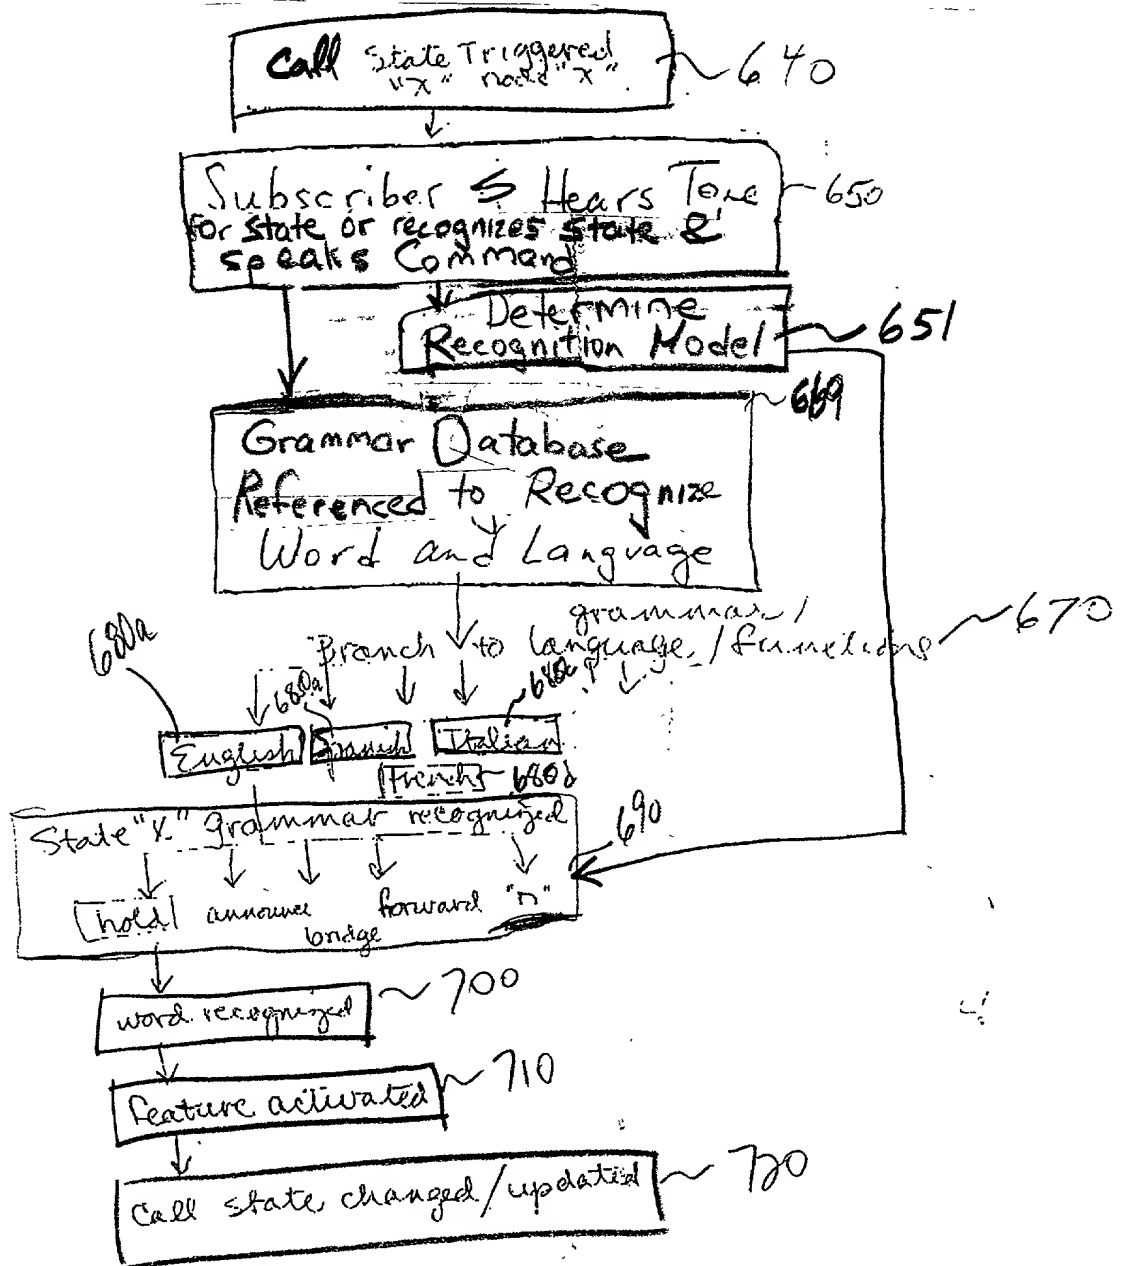 Call State Triggered
"X" node "X"
640
Subscriber S Hears Tone
650
for state or recognizes state &
speaks Command
Determine
651
Recognition Model
Grammar Database
Referenced to Recognize
Word and Language
grammar/
670
Branch to language/functions
680a
680a
English
Spanish
Italian
French
680d
State "X" grammar recognized
690
hold announce forward "n"
bridge
700
word recognized
710
feature activated
720
Call state changed/updated